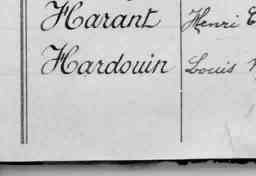 Harant Henri
Hardouin Louis